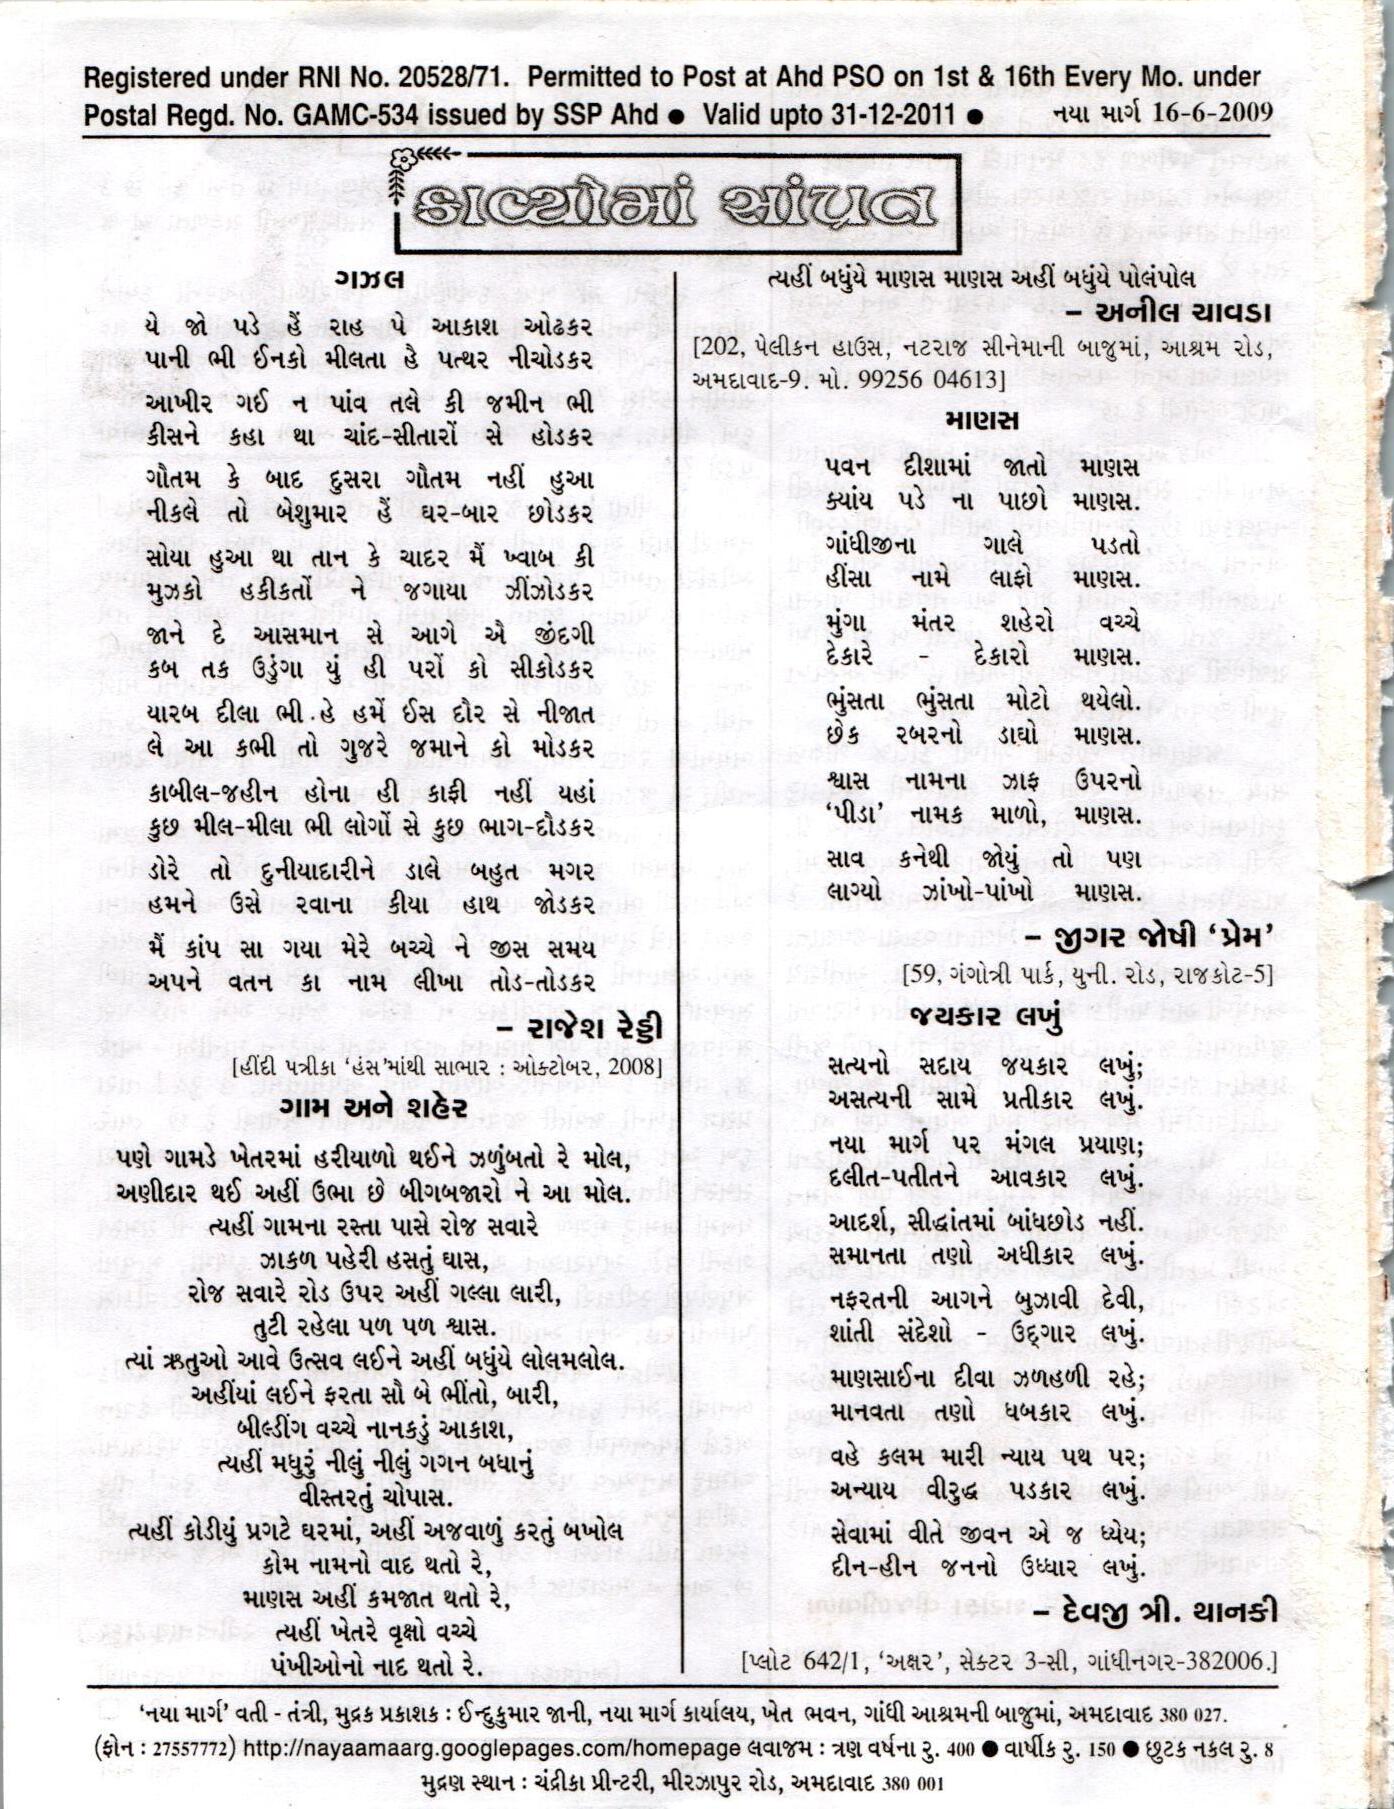 Registered under RNI No. 20528/71. Permitted to Post at Ahd PSO on 1st & 16th Every Mo. under
Postal Regd. No. GAMC-534 issued by SSP Ahd ● Valid upto 31-12-2011 ● નયા માર્ગ 16-6-2009
કાવ્યોમાં સાંપ્રત
ગઝલ
યે જો પડે હેં રાહ પે આકાશ ઓઢકર
પાની ભી ઈનકો મીલતા હે પત્થર નીચોડકર
આખીર ગઈ ન પાંવ તલે કી જમીન ભી
કીસને કહા થા ચાંદ-સીતારોં સે હોડકર
ગૌતમ કે બાદ દુસરા ગૌતમ નહીં હુઆ
નીકલે તો બેશુમાર હેં ઘર-બાર છોડકર
સોયા હુઆ થા તાન કે ચાદર મૈં ખ્વાબ કી
મુઝકો હકીકતોં ને જગાયા ઝીંઝોડકર
જાને દે આસમાન સે આગે એ જીંદગી
કબ તક ઉડુંગા યું હી પરોં કો સીકોડકર
યારબ દીલા ભી હે હમેં ઈસ દૌર સે નીજાત
લે આ કભી તો ગુજરે જમાને કો મોડકર
કાબીલ-જહીન હોના હી કાફી નહીં યહાં
કુછ મીલ-મીલા ભી લોગોં સે કુછ ભાગ-દૌડકર
ડોરે તો દુનીયાદારીને ડાલે બહુત મગર
હમને ઉસે રવાના કીયા હાથ જોડકર
મૈં કાંપ સા ગયા મેરે બચ્ચે ને જીસ સમય
અપને વતન કા નામ લીખા તોડ-તોડકર
– રાજેશ રેડ્ડી
[હીંદી પત્રીકા ‘હંસ’માંથી સાભાર : ઓક્ટોબર, 2008]
ગામ અને શહેર
પણે ગામડે ખેતરમાં હરીયાળો થઈને ઝળુંબતો રે મોલ,
અણીદાર થઈ અહીં ઉભા છે બીગબજારો ને આ મોલ.
ત્યહીં ગામના રસ્તા પાસે રોજ સવારે
ઝાકળ પહેરી હસતું ઘાસ,
રોજ સવારે રોડ ઉપર અહીં ગલ્લા લારી,
તુટી રહેલા પળ પળ શ્વાસ.
ત્યાં ઋતુઓ આવે ઉત્સવ લઈને અહીં બધુંયે લોલમલોલ.
અહીંયાં લઈને ફરતા સૌ બે ભીંતો, બારી,
બીલ્ડીંગ વચ્ચે નાનકડું આકાશ,
ત્યહીં મધુરું નીલું નીલું ગગન બધાનું
વીસ્તરતું ચોપાસ.
ત્યહીં કોડીયું પ્રગટે ઘરમાં, અહીં અજવાળું કરતું બખોલ
કોમ નામનો વાદ થતો રે,
માણસ અહીં કમજાત થતો રે,
ત્યહીં ખેતરે વૃક્ષો વચ્ચે
પંખીઓનો નાદ થતો રે.
ત્યહીં બધુંયે માણસ માણસ અહીં બધુંયે પોલંપોલ
– અનીલ ચાવડા
[202, પેલીકન હાઉસ, નટરાજ સીનેમાની બાજુમાં, આશ્રમ રોડ,
અમદાવાદ-9. મો. 99256 04613]
માણસ
પવન દીશામાં જાતો માણસ
ક્યાંય પડે ના પાછો માણસ.
ગાંધીજીના ગાલે પડતો
હીંસા નામે લાફો માણસ.
મુંગા મંતર શહેરો વચ્ચે
દેકારે - દેકારો માણસ.
ભુંસતા ભુંસતા મોટો થયેલો.
છેક રબરનો ડાઘો માણસ.
શ્વાસ નામના ઝાફ ઉપરનો
‘પીડા’ નામક માળો, માણસ.
સાવ કનેથી જોયું તો પણ
લાગ્યો ઝાંખો-પાંખો માણસ.
– જીગર જોષી ‘પ્રેમ’
[59, ગંગોત્રી પાર્ક, યુની. રોડ, રાજકોટ-5]
જયકાર લખું
સત્યનો સદાય જયકાર લખું;
અસત્યની સામે પ્રતીકાર લખું.
નયા માર્ગ પર મંગલ પ્રયાણ;
દલીત-પતીતને આવકાર લખું.
આદર્શ, સીદ્ધાંતમાં બાંધછોડ નહીં.
સમાનતા તણો અધીકાર લખું.
નફરતની આગને બુઝાવી દેવી,
શાંતી સંદેશો ઉદ્દગાર લખું.
માણસાઈના દીવા ઝળહળી રહે;
માનવતા તણો ધબકાર લખું.
વહે કલમ મારી ન્યાય પથ પર;
અન્યાય વીરુદ્ધ પડકાર લખું.
સેવામાં વીતે જીવન એ જ ધ્યેય;
દીન-હીન જનનો ઉધ્ધાર લખું.
– દેવજી ત્રી. થાનકી
[પ્લોટ 642/1, ‘અક્ષર’, સેક્ટર 3-સી, ગાંધીનગર-382006.]
‘નયા માર્ગ’ વતી - તંત્રી, મુદ્રક પ્રકાશક : ઈન્દુકુમાર જાની, નયા માર્ગ કાર્યાલય, ખેત ભવન, ગાંધી આશ્રમની બાજુમાં, અમદાવાદ 380 027.
(ફોન : 27557772) http://nayaamaarg.googlepages.com/homepage લવાજમ : ત્રણ વર્ષના રુ. 400 ● વાર્ષીક રુ. 150 ● છુટક નકલ રુ. 8
મુદ્રણ સ્થાન : ચંદ્રીકા પ્રીન્ટરી, મીરઝાપુર રોડ, અમદાવાદ 380 001